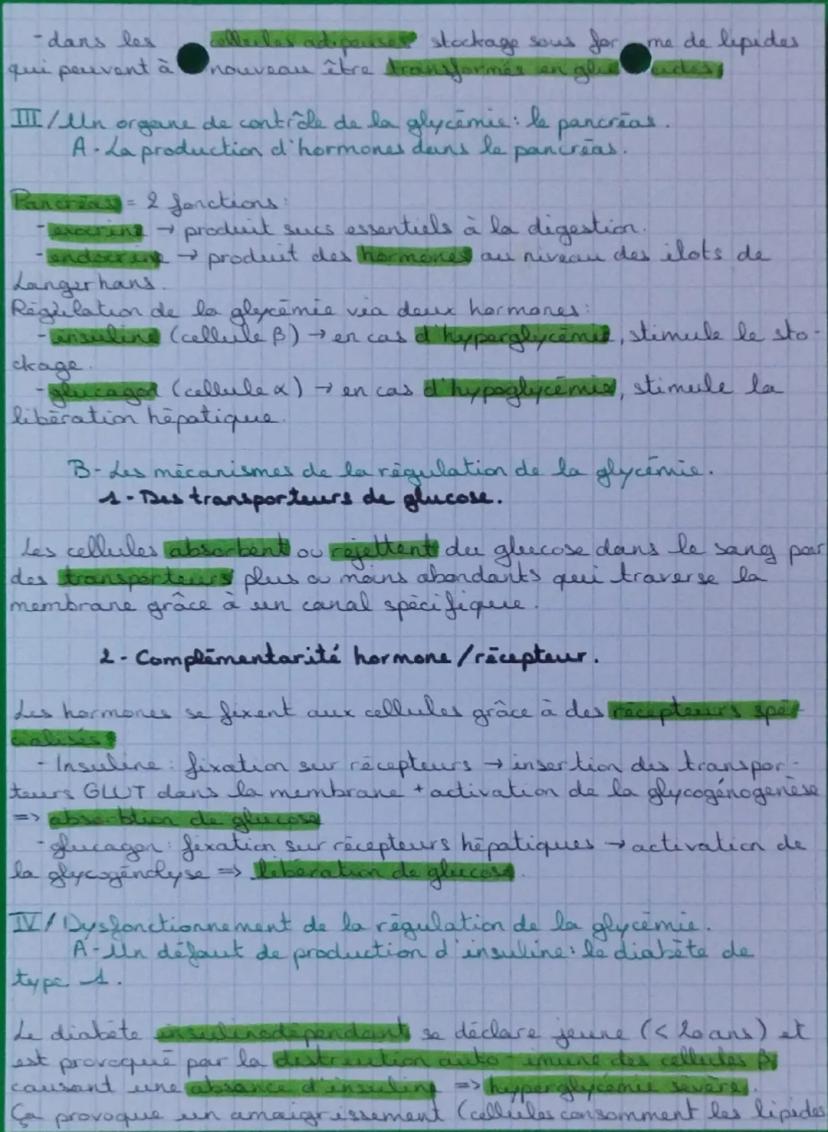 - dans les cellules adipeuses stockage sous forme de lipides
qui peuvent à nouveau être transformés en glucides
III/ Un organe de contrôle de la glycémie: le pancréas.
A - La production d'hormones dans le pancréas.
Pancréas = 2 fonctions:
- exocrine → produit sucs essentiels à la digestion.
- endocrine → produit des hormones au niveau des ilots de
Langerhans.
Régulation de la glycémie via deux hormones:
- insuline (cellule β) → en cas d'hyperglycémie, stimule le sto-
ckage.
- glucagon (cellule α) → en cas d'hypoglycémie, stimule la
libération hépatique.
B - Les mécanismes de la régulation de la glycémie.
1 - Des transporteurs de glucose.
Les cellules absorbent ou rejettent du glucose dans le sang par
des transporteurs plus ou moins abondants qui traverse la
membrane grâce à un canal spécifique.
2 - Complémentarité hormone/récepteur.
Les hormones se fixent aux cellules grâce à des récepteurs spé-
cialisés
- Insuline: fixation sur récepteurs → insertion des transpor-
teurs GLUT dans la membrane + activation de la glycogénogenèse
=> absorbtion de glucose
- glucagon: fixation sur récepteurs hépatiques → activation de
la glycogénolyse => libération de glucose.
IV/ Dysfonctionnement de la régulation de la glycémie.
A - Un défaut de production d'insuline: le diabète de
type 1.
Le diabète insulinodépendant se déclare jeune (< 20 ans) et
est provoqué par la destruction auto-imune des cellules β
causant une absance d'insuline => hyperglycémie sévère.
Ça provoque un amaigrissement (cellules consomment les lipides